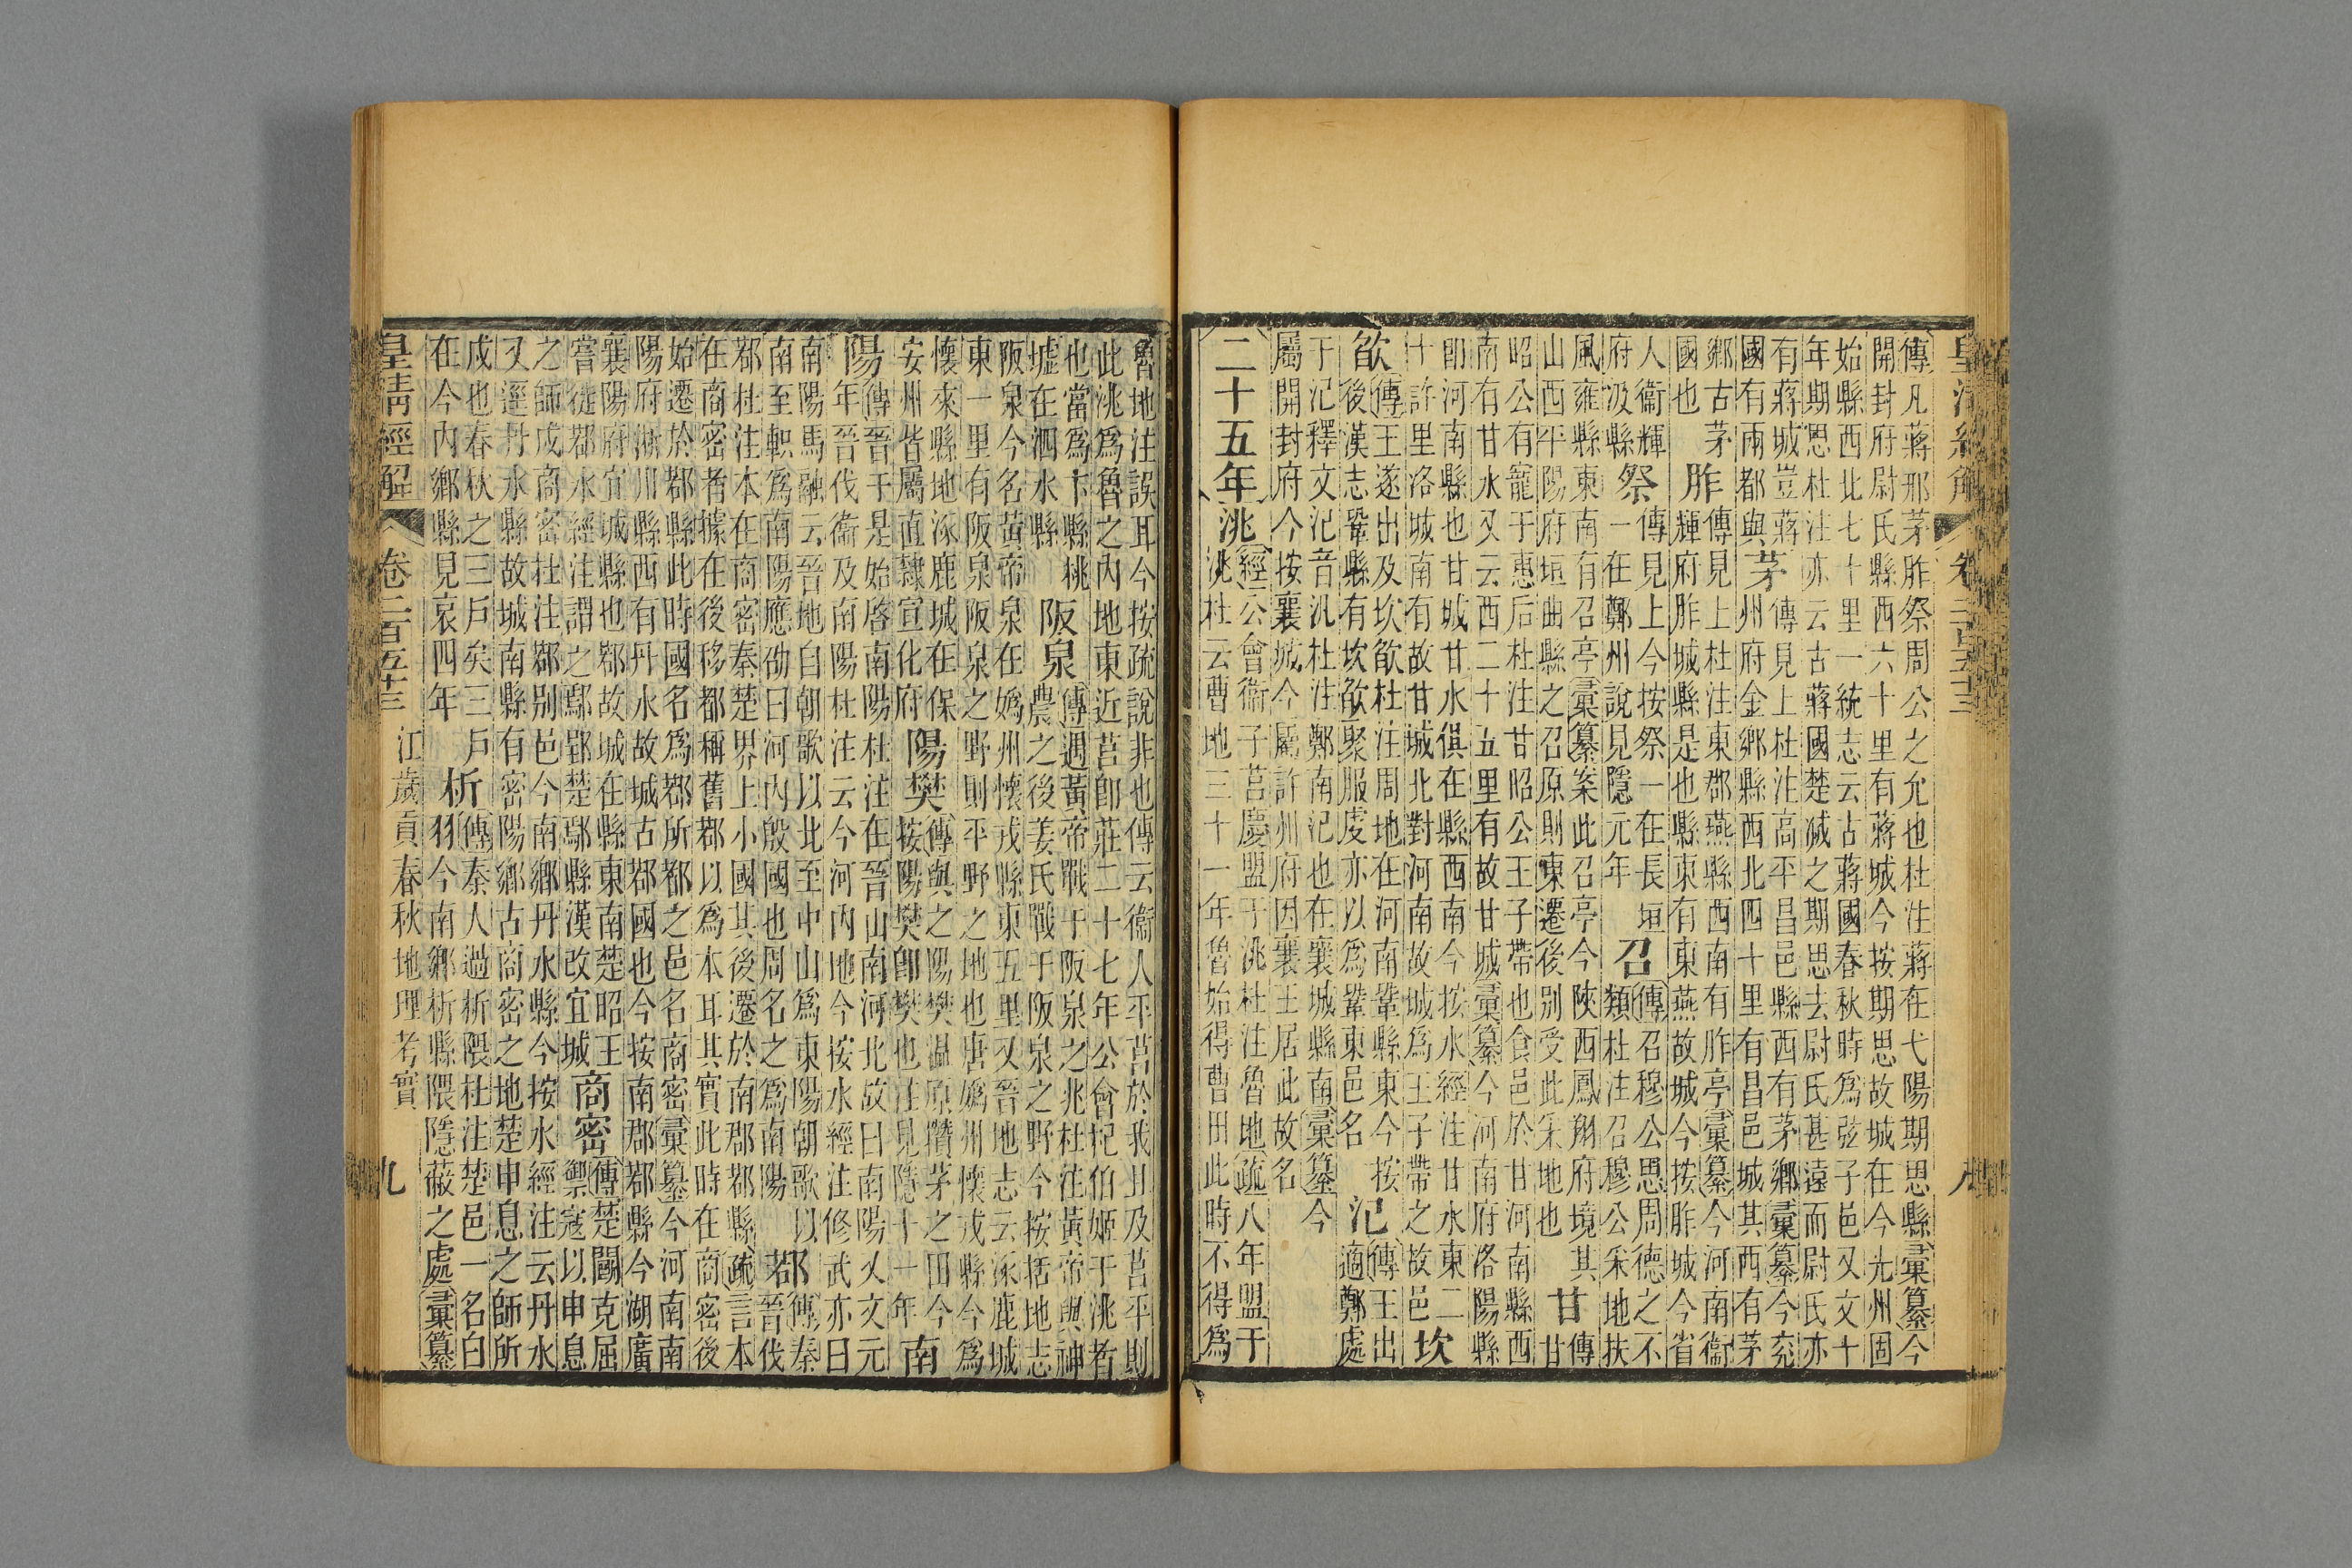 傳凡蔣邢茅胙祭周公之允也杜注蔣在弋陽期思縣彙纂今
開封府尉氏縣西六十里有蔣城今按期思故城在今光州固
始縣西北七十里一統志云古蔣國春秋時爲弦子邑又文十
年期思杜注亦云古蔣國楚滅之期思去尉氏甚遠而尉氏亦
有蔣城豈蔣
國有兩都與
茅
傳見上杜注高平昌邑縣西有茅鄉彙纂今兗
州府金鄉縣西北四十里有昌邑城其西有茅
鄉古茅
國也
胙
傳見上杜注東郡燕縣西南有胙亭彙纂今河南衞
輝府胙城縣是也縣東有東燕故城今按胙城今省
人衞輝
府汲縣
祭
傳見上今按祭一在長垣
一在鄭州說見隱元年
召
傳召穆公思周德之不
類杜注召穆公采地扶
風雍縣東南有召亭彙纂案此召亭今陝西鳳翔府境其
山西平陽府垣曲縣之召原則東遷後别受此采地也
甘
傳甘
昭公有寵于惠后杜注甘昭公王子帶也食邑於甘河南縣西
南有甘水又云西二十五里有故甘城彙纂今河南府洛陽縣
卽河南縣也甘城甘水俱在縣西南今按水經注甘水東二
十許里洛城南有故甘城北對河南故城爲王子帶之故邑
坎
欿
傳王遂出及坎欿杜注周地在河南鞏縣東今按
後漢志鞏縣有坎欿聚服虔亦以爲鞏東邑名
氾
傳王出
適鄭處
于氾釋文氾音汎杜注鄭南氾也在襄城縣南彙纂今
屬開封府今按襄城今屬許州府因襄王居此故名
二十五年
洮
經公會衞子莒慶盟于洮杜注魯地疏八年盟于
洮杜云曹地三十一年魯始得曹田此時不得爲
魯地注誤耳今按疏說非也傳云衞人平莒於我且及莒平則
此洮爲魯之内地東近莒卽莊二十七年公會杞伯姬于洮者
也當爲卞縣桃
墟在泗水縣
阪泉
傳遇黃帝戰于阪泉之兆杜注黃帝與神
農之後姜氏戰于阪泉之野今按括地志
阪泉今名黃帝泉在嬀州懷戎縣東五里又晉地志云涿鹿城
東一里有阪泉阪泉之野則平野之地也唐嬀州懷戎縣今爲
懷來縣地涿鹿城在保
安州皆屬直隸宣化府
陽樊
傳與之陽樊溫原欑茅之田今
按陽樊卽樊也注見隱十一年
南
陽
傳晉于是始啓南陽杜注在晉山南河北故曰南陽又文元
年晉伐衞及南陽杜注云今河内地今按水經注修武亦曰
南陽馬融云晉地自朝歌以北至中山爲東陽朝歌以
南至軹爲南陽應劭曰河内殷國也周名之爲南陽
鄀
傳秦
晉伐
鄀杜注本在商密秦楚界上小國其後遷於南郡鄀縣疏言本
在商密者據在後移都稱舊鄀以爲本耳其實此時在商密後
始遷於鄀縣此時國名爲鄀所都之邑名商密彙纂今河南南
陽府淅川縣西有丹水故城古鄀國也今按南郡鄀縣今湖廣
襄陽府宜城縣也鄀故城在縣東南楚昭王
嘗徙鄀水經注謂之鄢郢楚鄢縣漢改宜城
商密
傳楚鬭克屈
禦寇以申息
之師戍商密杜注鄀别邑今南鄉丹水縣今按水經注云丹水
又逕丹水縣故城南縣有密陽鄉古商密之地楚申息之師所
戍也春秋之三戶矣三戶
在今内鄉縣見哀四年
析
傳秦人過析隈杜注楚邑一名白
羽今南鄉析縣隈隱蔽之處彙纂
皇清經解
卷二百五十三
江歲貢春秋地理考實
九